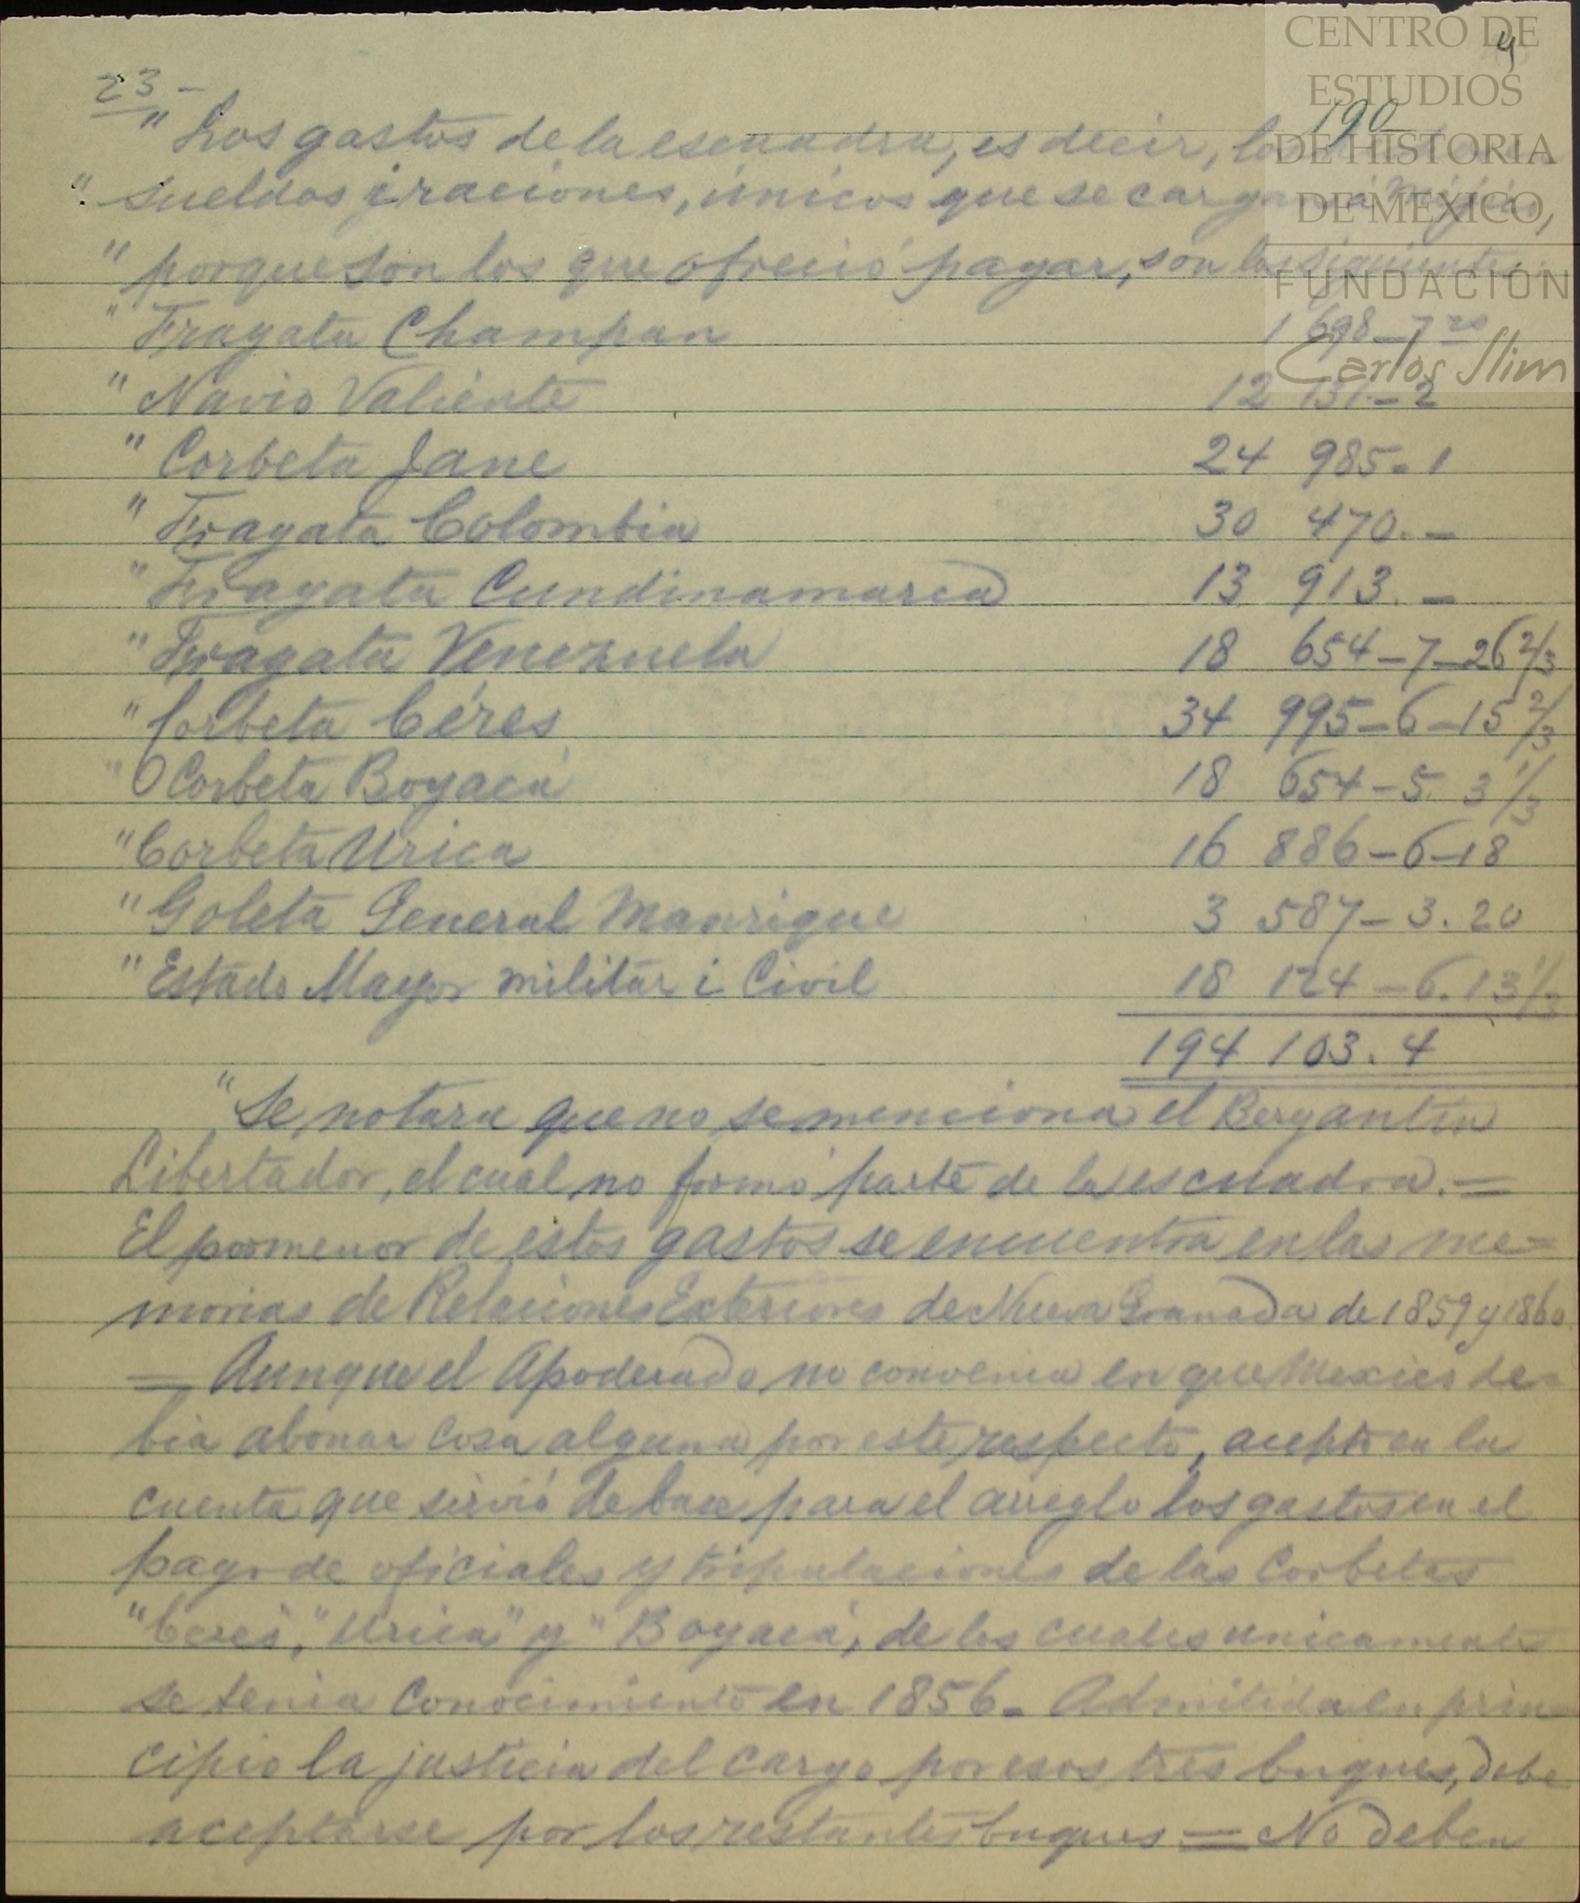 CENTRO DE
ESTUDIOS
DE HISTORIA
DE MEXICO,
FUNDACIÓN
Carlos Slim
4
190
23-
"Los gastos de la escuadra, es decir, los
" sueldos i raciones, únicos que se cargan á Méjico,
" porque son los que ofreció pagar, son los siguientes
" Fragata Champan 1 698-7 rs
" Navio Valiente 12 131-2
" Corbeta Jane 24 985-1
" Fragata Colombia 30 470.-
" Fragata Cundinamarca 13 913.-
" Fragata Venezuela 18 654-7-26 2/3
" Corbeta Céres 34 995-6-15 2/3
" Corbeta Boyacá 18 654-5 3 1/3
" Corbeta Urica 16 886-6-18
" Goleta General Manrique 3 587-3.20
" Estado Mayor militar i Civil 18 124-6.13 1/3
194 103.4
"Se notara que no se menciona el Bergantin
Libertador, el cual no formó parte de la escuadra.=
El pormenor de estos gastos se encuentra en las me=
morias de Relaciones Exteriores de Nueva Granada de 1859 y 1860
= Aunque el Apoderado no convenia en que Mexico de=
bia abonar cosa alguna por este respecto, aceptó en la
cuenta que sirvió de base para el arreglo los gastos en el
pago de oficiales y tripulaciones de las Corbetas
"Ceres", "Urica" y "Boyacá, de los cuales unicamente
se tenia Conocimiento en 1856- Admitida en prin=
cipio la justicia del cargo por esos tres buques, debe
aceptarse por los restantes buques = No deben